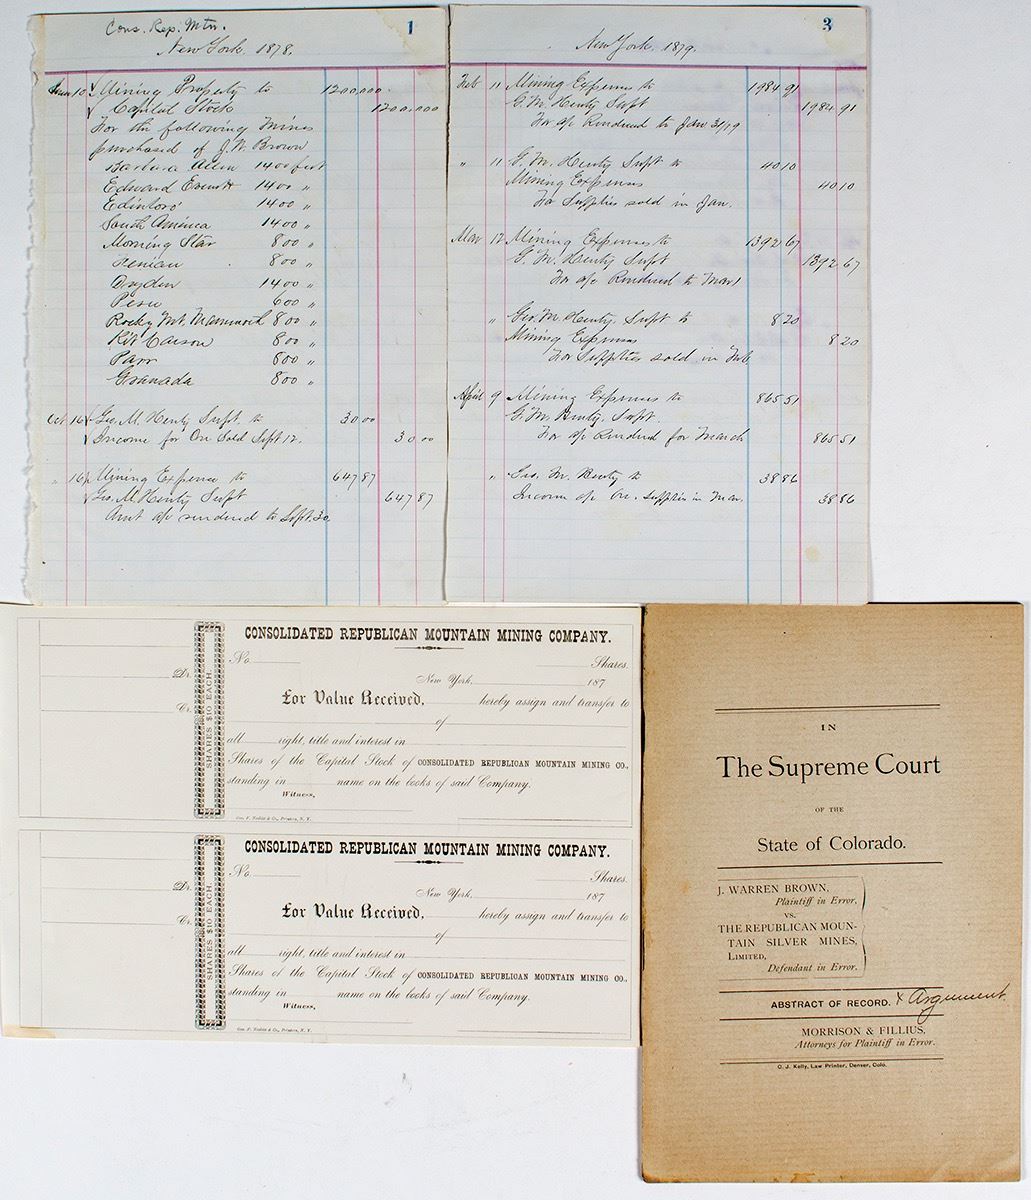 Cons. Rep. Mtn.
1
New York, 1878.
10 Mining Property to 1200,000.
Capital Stock 1200,000
For the following Mines
purchased of J. W. Brown
Barbara Allen 1400 feet
Edward Everett 1400 "
1400 "
South America 1400 "
Morning Star 800 "
Fenian 800 "
Dryden 1400 "
Peru 600 "
Rocky Mt. Mammoth 800 "
Kit Carson 800 "
Parr 800 "
Granada 800 "
Oct 16 Geo. M. Henty Supt. to 30 00
Income for Ore Sold Sept 12. 30 00
" 16 Mining Expense to 647 87
Geo. M. Henty Supt 647 87
Amt a/c rendered to Sept. 30
3
New York, 1879.
Feb 11 Mining Expenses to 1984 91
G. M. Henty Supt 1984 91
For a/c Rendered to Jan 31/79
" 11 G. M. Henty Supt to 40 10
Mining Expenses 40 10
For Supplies sold in Jan.
Mar 12 Mining Expenses to 1392 67
G. M. Henty Supt 1392 67
For a/c Rendered to Mar 1
" Geo. M. Henty, Supt to 8 20
Mining Expenses 8 20
For Supplies sold in Feb.
April 9 Mining Expenses to 865 51
G. M. Henty, Supt.
For a/c Rendered for March 865 51
" Geo. M. Henty to 38 86
Income a/c Ore. supplies in Mar. 38 86
CONSOLIDATED REPUBLICAN MOUNTAIN MINING COMPANY.
No.
Shares.
Dr.
New York, 187
SHARES $10 EACH.
For Value Received, hereby assign and transfer to
Cr.
of
all right, title and interest in
Shares of the Capital Stock of CONSOLIDATED REPUBLICAN MOUNTAIN MINING CO.,
standing in name on the books of said Company.
Witness,
Geo. F. Nesbitt & Co., Printers, N. Y.
CONSOLIDATED REPUBLICAN MOUNTAIN MINING COMPANY.
No.
Shares.
Dr.
New York, 187
SHARES $10 EACH.
For Value Received, hereby assign and transfer to
Cr.
of
all right, title and interest in
Shares of the Capital Stock of CONSOLIDATED REPUBLICAN MOUNTAIN MINING CO.,
standing in name on the books of said Company.
Witness,
Geo. F. Nesbitt & Co., Printers, N. Y.
IN
The Supreme Court
OF THE
State of Colorado.
J. WARREN BROWN,
Plaintiff in Error,
vs.
THE REPUBLICAN MOUN-
TAIN SILVER MINES,
LIMITED,
Defendant in Error.
ABSTRACT OF RECORD. & Argument
MORRISON & FILLIUS,
Attorneys for Plaintiff in Error.
O. J. Kelly, Law Printer, Denver, Colo.